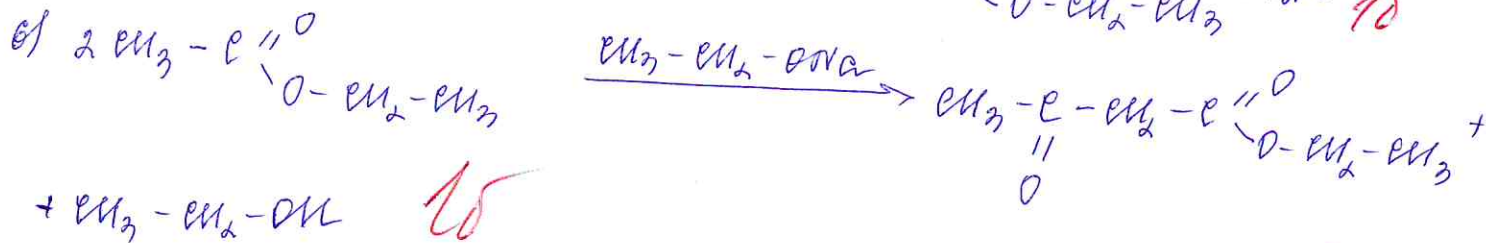 O-CH₂-CH₃ 1б
б) 2 CH₃-C(=O)-O-CH₂-CH₃ CH₃-CH₂-ONa → CH₃-C(=O)-CH₂-C(=O)-O-CH₂-CH₃ +
+ CH₃-CH₂-OH 1б